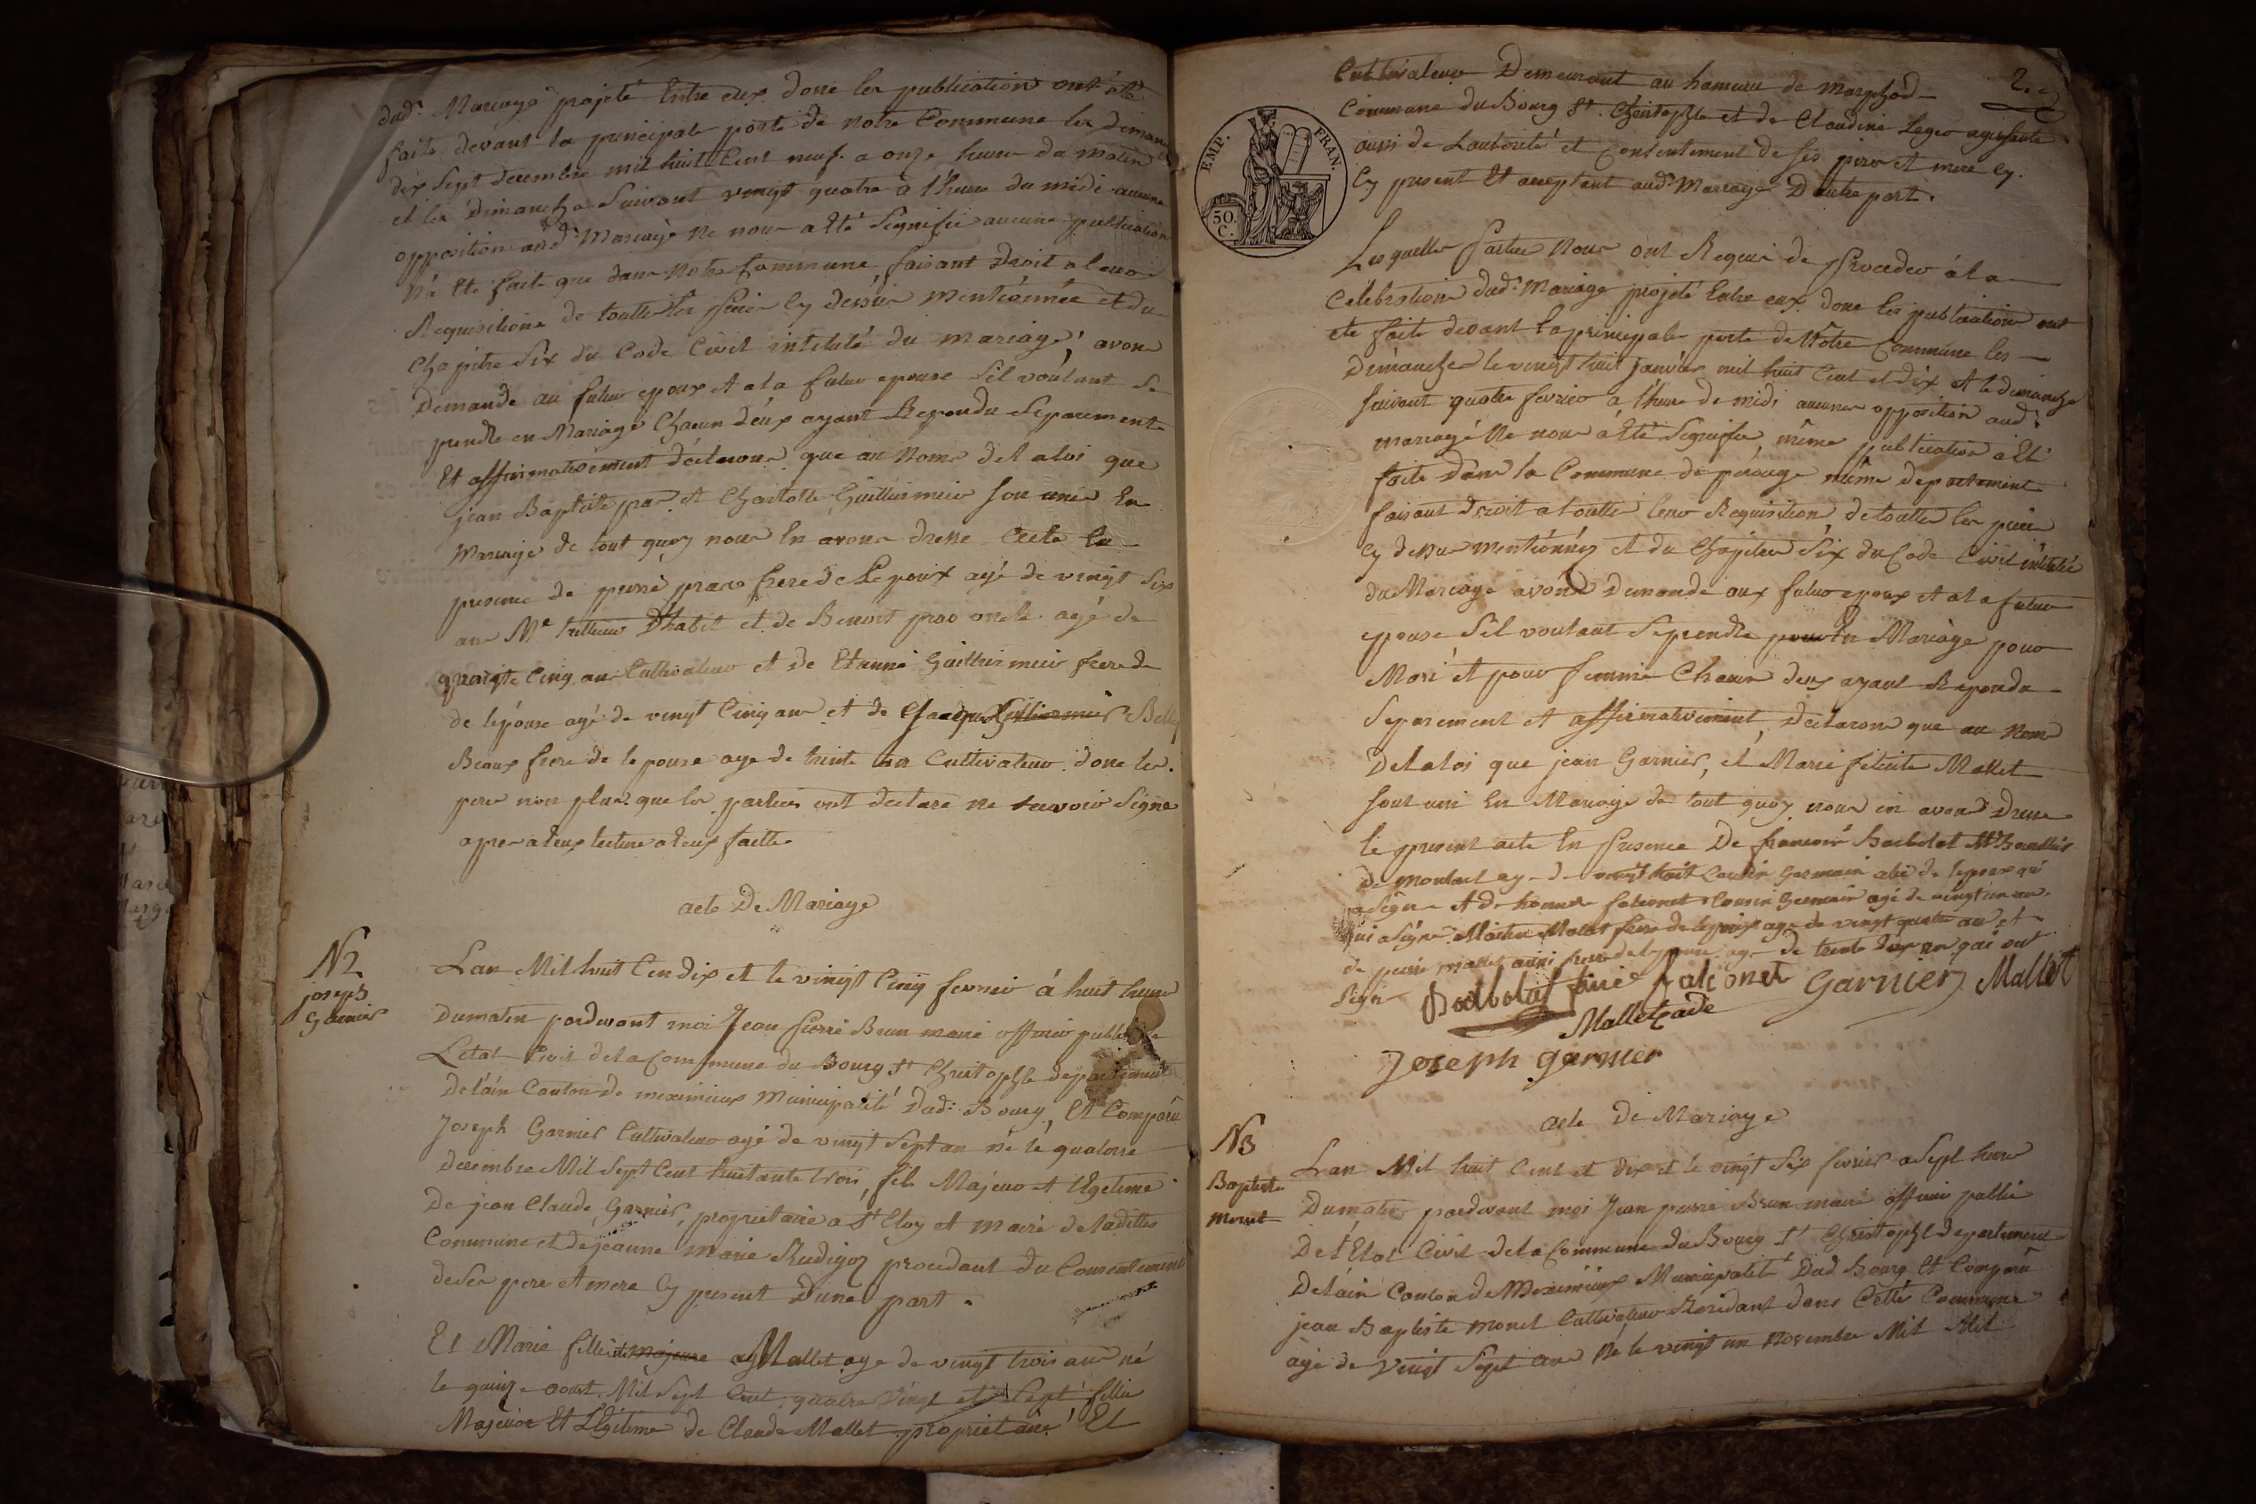 dudt. Mariage projeté Entre eux donc les publication ont été
faite devant la principale porte de notre Commune les dimanche
dix Sept decembre mil huit Cent neuf a onze heure du matin
et les Dimanche Suivant vingt quatre a l'heure du midi aucune
opposition audt. Mariage ne nous a Eté Signifié aucune publication
n'a Eté faite que dans notre Commune, faisant Droit a leur
Requisitione de toutte les piece cy dessus mentionnée et du
Chapitre Six du Code Civil intitulé du mariage, avons
Demande au futur epoux et a la futur epouse Sil voulant Se
prendre en Mariage Chacun d'eux ayant Repondu Separement
Et affirmativement déclarons que au Nome de la loi que
jean Baptiste et Charlotte Guillermier Son unis En
Mariage de tout quoy nous En avons dresse Acte En
presence de pierre frere de L'epoux agé de vingt Six
ans Me tailleur D'habit et de Benoit oncle agé de
Cinq ans Cultivateur et de Etienne Guillermier frere de
de lépouse agé de vingt Cinq ans et de Jacque Guilliermier Belly
Beaux frere de le pouse age de trente un Cultivateur donc les
pere non plus que les parties ont declare ne Scavoir Signe
apres a leux lecture a leux faitte
acte De Mariage
N2
joseph
Garnier
Lan Mil huit Cen dix et le vingt Cinq fevrier á huit heure
Dumatin pardevant moi Jean pierre Brun maire officier public de
Letat Civil de la Commune du Bourg St Christophle departement
De l'ain Canton de meximieux Municipalité Dudt. Bourg, Et Comparu
Joseph Garnier Cultivateur agé de vingt Sept an né le quatorse
decembre Mil Sept Cent huitante trois, fils Majeur et legetime
De jean Claude Garnier, proprietaire a St Eloy et maire de ladittes
Commune et de jeanne Marie Rudigoz procedant du Consentement
de Ses pere et mere Cy present D'une part.
Et Marie fellicité Majeure Mallet age de vingt trois ans né
le quinze aoust Mil Sept Cent quatre Vingt et Sept fille
Majeure Et Légitime de Claude Mallet proprietaire Et
2.
Cultivateur Demeurant au hameau de Marphod
Commune du Bourg St. Christophle et de Claudine Leger agissante
aussi de L'autorité et Consentement de Ses pere et mere Cy
Cy present Et acceptent audt. Mariage D'autre part.
EMP. FRAN.
50. C.
Lesquelles Parties Nous ont Requis de Proceder á la
Celebration dudt. Mariage projeté Entre eux donc les publication ont
eté faite devant la principale porte de Notre Commune les
Dimanche le vingt huit Janvier mil huit Cent et dix et le dimanche
Suivant quatre fevrier a l'heure de midi aucune opposition audt.
mariage Ne nous a Eté Signifié même publication a Eté
faite dans la Commune de perouge même departement
faisant droit a toutte leur Requisition de toutte les piece
Cy dessus mentionnéz et du Chapitre Six du Code Civil intitulé
du Mariage avons Demande aux futur epoux et a la futur
epouse Sil voulant Se prendre pour En Mariage pour
Mari et pour femme Chacun deux ayant Repondu
Separement et affirmativement, Declarons que au Nom
De la loi que jean Garnier, et Marie felicité Mallet
Sont uni En Mariage de tout quoy nous en avons Dresse
le present acte En Presence De françois Bathelat
de montuel age de vingt huit Cousin Germain alié de lepoux qui
a Signé Et de falconet Cousin Germain agé de vingt un an
qui a Signé Mallet frere de lepouse age de vingt quatre an et
de pierre Mallet aussi frere de lepouse age de trente deux an qui ont
Signe falconet Garnier Mallet
Mallet cade
Joseph garnier
acte De Mariage
N3
Baptiste
Moret
Lan Mil huit Cent et dix et le vingt Six fevrier a Sept heure
Dumatin pardevant moi Jean pierre Brun maire officier public
De l'Etat Civil de la Commune du Bourg St Christophle departement
De láin Canton de Meximieux Municipalité Dud Bourg Et Comparu
jean Baptiste Moret Cultivateur Residant dans Cette Commune
agé de Vingt Sept ans Né le vingt un Novembre Mil Mil